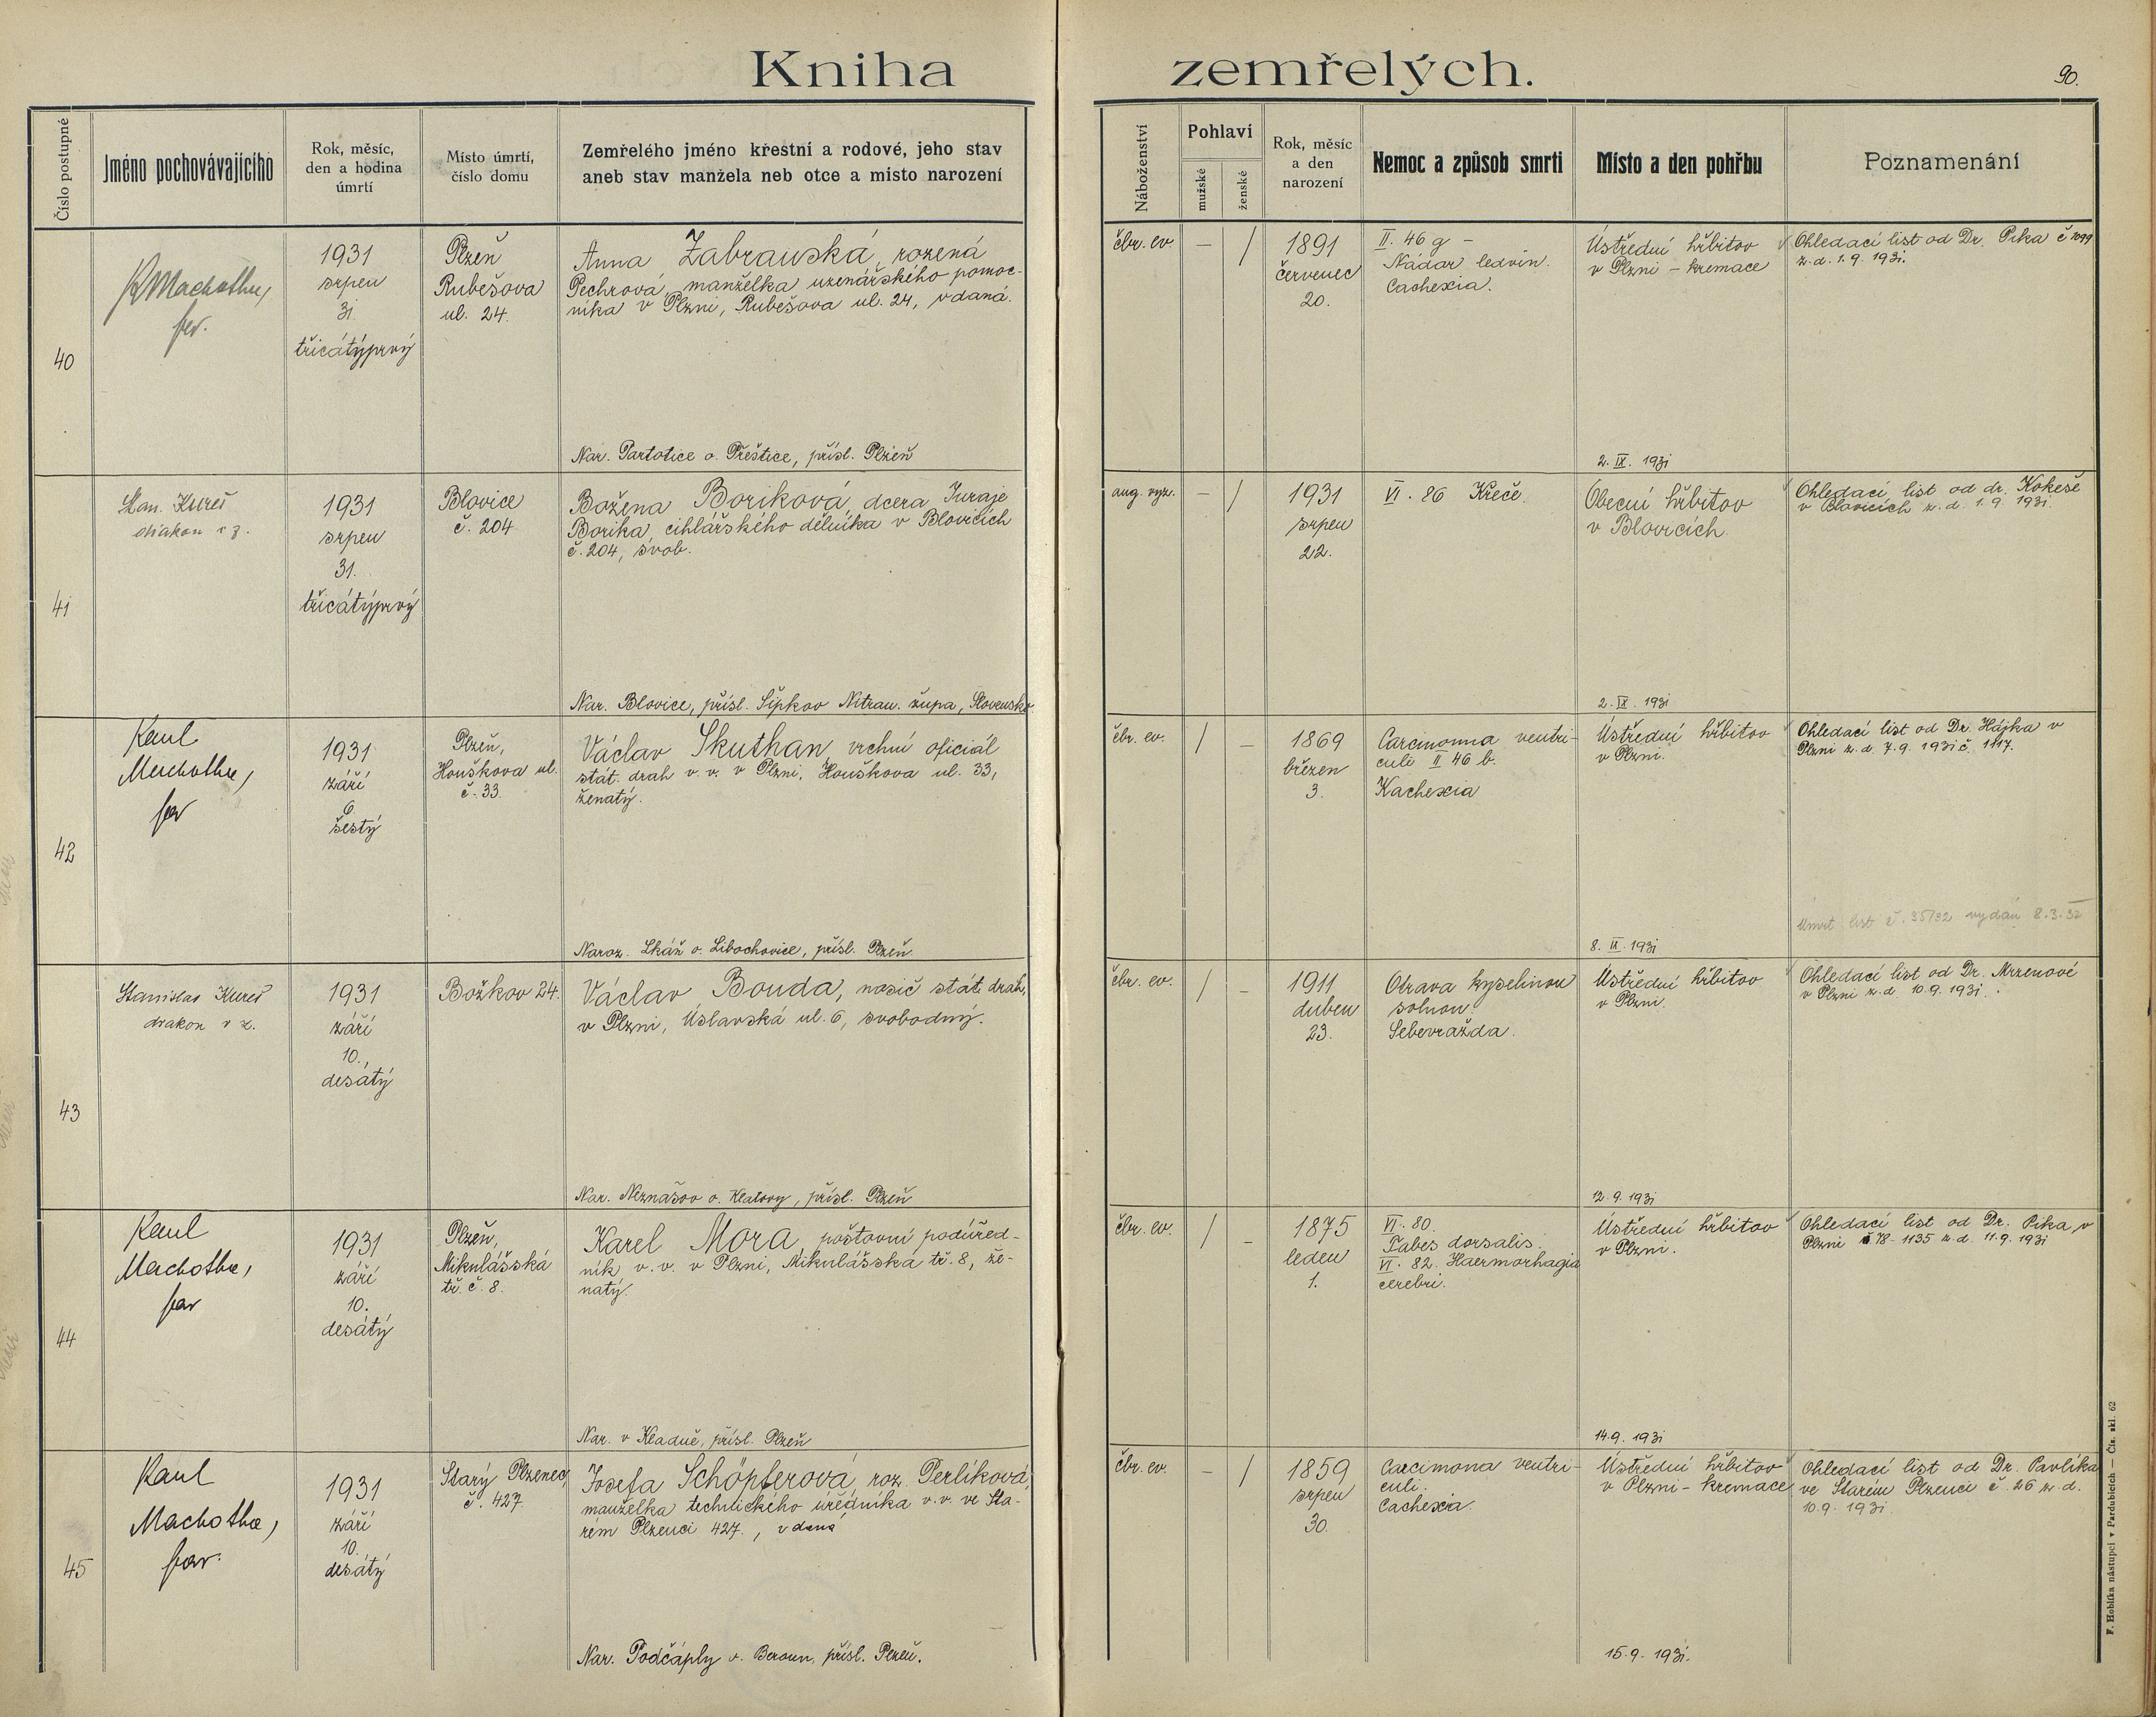 Kniha zemřelých.
90.
Číslo postupné
Jméno pochovávajícího
Rok, měsíc,
den a hodina
úmrtí
Místo úmrtí,
číslo domu
Zemřelého jméno křestní a rodové, jeho stav
aneb stav manžela neb otce a místo narození
Náboženství
Pohlaví
mužské
ženské
Rok, měsíc
a den
narození
Nemoc a způsob smrti
Místo a den pohřbu
Poznamenání
40
K Machotka,
far.
1931
srpen
31
třicátýprvý
Plzeň
Rubešova
ul. 24.
Anna Zabranská, rozená
Pechrová, manželka uzenářského pomoc-
níka v Plzni, Rubešova ul. 24, vdaná.
Nar. Partotice o. Přeštice, přísl. Plzeň
čbr. ev.
– /
1891
červenec
20.
II. 46 g –
Nádor ledvin.
Cachexia.
Ústřední hřbitov
v Plzni – kremace
2. IX. 1931
Ohledací list od Dr. Pika č 1099
z. d. 1. 9. 1931.
41
Stan. Kureš
diakon v z.
1931
srpen
31.
třicátýprvý
Blovice
č. 204
Božena Boriková, dcera Juraje
Borika, cihlářského dělníka v Blovicích
č. 204, svob.
Nar. Blovice, přísl. Šipkov Nitran. župa, Slovensko.
aug. vyz.
– /
1931
srpen
22.
VI. 86 Křeče.
Obecní hřbitov
v Blovicích.
2. IX. 1931
Ohledací list od dr. Kokeše
v Blovicích z. d. 1. 9. 1931.
42
Karel
Machotka,
far
1931
září
6.
šestý
Plzeň,
Houškova ul.
č. 33.
Václav Skuthan, vrchní oficiál
stát. drah v. v. v Plzni, Houškova ul. 33,
ženatý.
Naroz. Lkáň o. Libochovice, přísl. Plzeň.
čbr. ev.
/ –
1869
březen
3.
Carcinoma ventri-
culi II 46 b.
Kachexia
Ústřední hřbitov
v Plzni.
8. IX. 1931
Ohledací list od Dr. Hájka v
Plzni z. d. 7. 9. 1931 č. 1117.
Úmrt. list č. 35/32 vydán 8. 3. 32
43
Stanislav Kureš
diakon v z.
1931
září
10.,
desátý
Božkov 24.
Václav Bouda, nosič stát. drah,
v Plzni, Úslavská ul. 6, svobodný.
Nar. Neznašov o. Klatovy, přísl. Plzeň
čbr. ev.
/ –
1911
duben
23.
Otrava kyselinou
solnou.
Sebevražda.
Ústřední hřbitov
v Plzni.
12. 9. 1931
Ohledací list od Dr. Mrzenové
v Plzni z. d. 10. 9. 1931.
44
Karel
Machotka,
far
1931
září
10.
desátý
Plzeň,
Mikulášská
tř. č. 8.
Karel Mora, poštovní podúřed-
ník v. v. v Plzni, Mikulášská tř. 8, že-
natý.
Nar. v Kladně, přísl. Plzeň
čbr. ev.
/ –
1875
leden
1.
VI. 80.
Tabes dorsalis.
VI. 82. Haermorhagia
cerebri.
Ústřední hřbitov
v Plzni.
14. 9. 1931
Ohledací list od Dr. Pika v
Plzni č 78 - 1135 z. d. 11. 9. 1931
45
Karel
Machotka,
far.
1931
září
10.
desátý
Starý Plzenec,
č. 427.
Josefa Schöpferová, roz. Perlíková,
manželka technického úředníka v. v. ve Sta-
rém Plzenci 427., vdaná
Nar. Podčáply o. Beroun, přísl. Plzeň.
čbr. ev.
– /
1859
srpen
30.
Carcimona ventri-
culi.
Cachexia.
Ústřední hřbitov
v Plzni – kremace
15. 9. 1931.
Ohledací list od Dr. Pavlíka
ve Starém Plzenci č. 26 z. d.
10. 9. 1931.
F. Hoblíka nástupci v Pardubicích — Čís. skl. 62